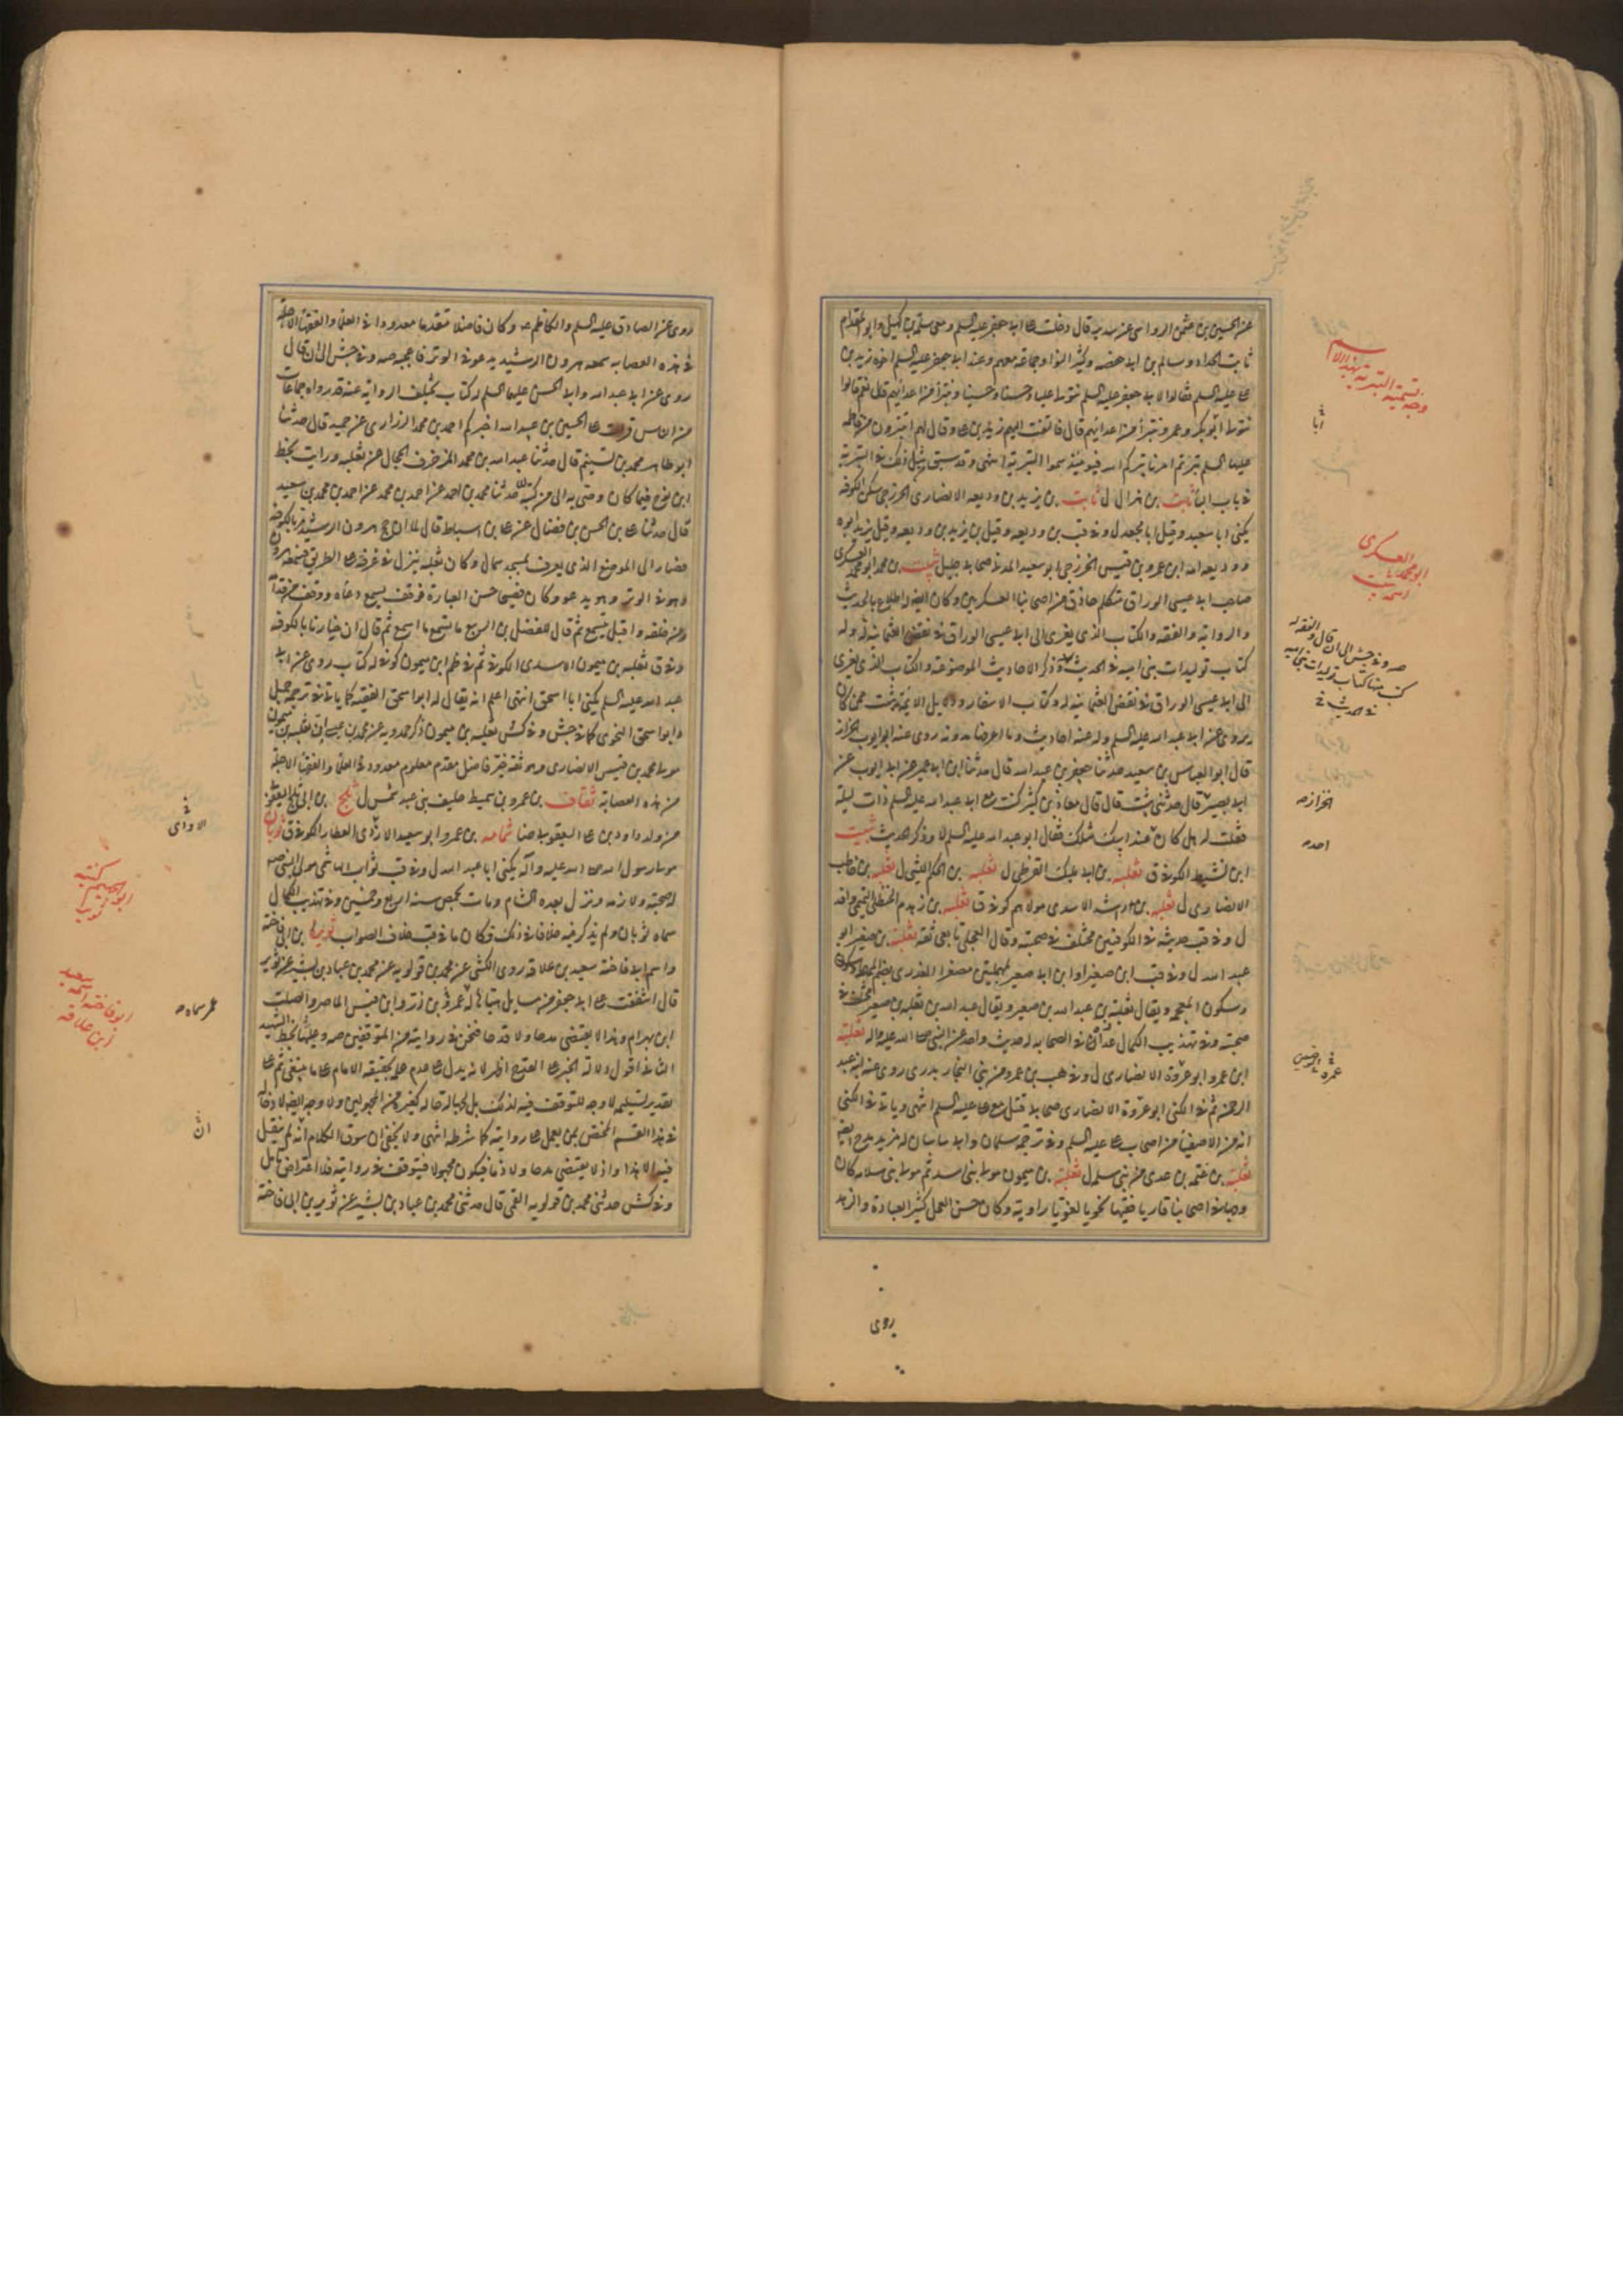 عن الحسين بن عثمن الرواسي عن سدير قال دخلت على ابي جعفر عليه السلم ومعي سلمة بن كهيل وابو المقدام
ثابت الحداد وسالم بن ابي حفصه وكثير النوا وجماعة معهم وعند ابي جعفر عليه السلم اخوه زيد بن
علي عليه السلم فقالوا لابي جعفر عليه السلم نتولى عليا وحسنا وحسينا ونتبرأ من اعدائهم قال نعم قالوا
نتولى ابو بكر وعمر ونتبرأ من اعدائهم قال فالتفت اليهم زيد بن علي وقال لهم اتتبرون من فاطمه
عليها السلم بترتم امرنا بتركم الله فيومئذ سموا البترية انتهى وقد سبق مثل ذلك في البترية
في باب ان ثابت بن هزال ل ثابت بن يزيد بن وديعه الانصاري الخزرجي سكن الكوفه
يكنى ابا سعيد وقيل ابا
ووديعه امه ابن عمرو بن قيس الخزرجي ابو سعيد المدني صحابي جليل ثبيت بن محمد ابو محمد العسكري
صاحب ابي عيسى الوراق متكلم حاذق من اصحابنا العسكريين وكان ايضا له اطلاع بالحديث
والرواية والفقه والكتاب الذي يعزى الى ابي عيسى الوراق في نقض العثمانيه له وله
كتاب توليدات بني اميه في الحديث وذكر الاحاديث الموضوعة والكتاب الذي يعزى
الى ابي عيسى الوراق في نقض العثمانيه له وكتاب الاسفار ودلايل الائمة ثبيت ممن كان
يروي عن ابي عبد الله عليه السلم وله عنه احاديث وما اعرفنا مدونه روى عنه ابو ايوب الخراز
قال ابو العباس بن سعيد حدثنا جعفر بن عبد الله قال حدثنا ابن ابي عمير عن ابي ايوب عن
ابي بصير قال حدثني ثبيت قال قال معاذ بن كثير كنت مع ابي عبد الله عليه السلم ذات ليلة
فقلت له هل كان عند ابيك مثلك فقال ابو عبد الله عليه السلم لا وذكر الحديث ثبيت
ابن نشيط الكوفي ق ثعلبه بن ابي مليك القرظي ل ثعلبه بن الحكم الليثي ل ثعلبه بن حاطب
الانصاري ل ثعلبه بن راشد الاسدي مولاهم كوفي ق ثعلبة بن زهدم الحنظلي التميمي
ل وفي قب حديثه في الكوفيين مختلف في صحبته وقال العجلي تابعي ثقه ثعلبة بن صعير ابو
عبد الله ل وفي قب ابن صعير او ابن ابي صعير بمهملتين مصغرا العذري بضم المهملة وسكون
وسكون المعجمه ويقال ثعلبة بن عبد الله بن صعير ويقال عبد الله بن ثعلبه بن صعير مختلف في
صحبته وفي تهذيب الكمال في الصحابه له حديث واحد عن النبي صلى الله عليه واله ثعلبة
ابن عمرو ابو عمرة الانصاري ل وفي هب بن عمرو من بني النجار بدري روى عنه ابنه عبد
الرحمن ثم في الكنى ابو عمرة الانصاري صحابي قتل مع علي عليه السلم انتهى وياتي في الكنى
انه من الاصفياء من اصحاب علي عليه السلم وفي ترجمة سلمان وابي ساسان له مزيد مدح ايضا
ثعلبة بن غنمه بن عدي من بني سلمه ل ثعلبة بن ميمون مولى بني اسد ثم مولى بني سلامه كان
وجها في اصحابنا قاريا فقيها نحويا لغويا راوية وكان حسن العمل كثير العبادة والزهد
وجه تسمية البترية بهذا الاسم
ابو محمد العسكري اسمه ثبيت
الخزاز صه
احد صه
روى
روى عن الصادق عليه السلم والكاظم عه وكان فاضلا متقدما معدودا في العلماء والفقهاء الاجلة
في هذه العصابه سمعه هرون الرشيد يدعو في الوتر فاعجبه صه وفي جش الى ان قال
روى عن ابي عبد الله وابي الحسن عليهما السلم له كتاب يختلف الرواية عنه قد رواه جماعات
من الناس قرأت على الحسين بن عبد الله اخبركم احمد بن محمد الزراري عن حميد قال حدثنا
ابو طاهر محمد بن تسنيم قال حدثنا عبد الله بن محمد المزخرف الحجال عن ثعلبه ورايت بخط
ابن نوح فيما كان وصى به الي من كتبه حدثنا محمد بن احمد عن احمد بن محمد عن احمد بن محمد بن سعيد
قال حدثنا علي بن الحسن بن فضال عن علي بن اسباط قال لما ان حج هرون الرشيد مر بالكوفه
فصار الى الموضع الذي يعرف بمسجد سمال وكان ثعلبه ينزل في غرفه على الطريق فسمعه هرون
وهو في الوتر وهو يدعو وكان فصيحا حسن العبارة فوقف يسمع دعاءه ووقف من قدامه
ومن خلفه واقبل يسمع ثم قال للفضل بن الربيع ما تسمع ما اسمع ثم قال ان خيارنا بالكوفه
وفي ق ثعلبه بن ميمون الاسدي الكوفي ثم في ظم ابن ميمون كوفي له كتاب روى عن ابي
عبد الله عليه السلم يكنى ابا اسحق انتهى اعلم انه يقال له ابو اسحق الفقيه كما ياتي في ترجمة جميل
وابو اسحق النحوي كما في جش وفي كش ثعلبه بن ميمون ذكر حمدويه عن محمد بن عيسى ان ثعلبه بن ميمون
مولى محمد بن قيس الانصاري وهو ثقة خير فاضل مقدم معلوم معدود في العلماء والفقهاء الاجلة
من هذه العصابة ثقاف بن عمرو بن سميط حليف بني عبد شمس ل ثلج بن ابي ثلج اليعقوبي
من ولد داود بن علي اليعقوبي ضا ثمامه بن عمرو ابو سعيد الازدي العطار الكوفي ق ثوبان
مولى رسول الله صلى الله عليه وآله يكنى ابا عبد الله ل وفي قب ثوبان الهاشمي مولى النبي صه
صحبته ولازمه ونزل بعده الشام ومات بحمص سنة اربع وخمسين وفي تهذيب الكمال
سماه ثوبان ولم يذكر فيه خلافا في ذلك وكان ما في قب خلاف الصواب ثوير بن ابي فاخته
واسم ابي فاخته سعيد بن علاقه روى الكشي عن محمد بن قولويه عن محمد بن عباد بن بشير عن ثوير
قال اشفقت على ابي جعفر من مسايل هيأها له عمرو بن ذر وابن قيس الماصر والصلت
ابن بهرام وهذا لا يقتضي مدحا ولا قدحا فنحن في روايته من المتوقفين صه وعليها بخط الشهيد
الثاني اقول دلالة الخبر على القدح اظهر لانه يدل على عدم علمه بحقيقه الامام على ما ينبغي ثم على
تقدير تسليمه لا وجه للتوقف فيه لذلك بل لجهالة حاله كغيره من المجهولين ولا وجه ايضا لادخاله
في هذا القسم المختص بمن يعمل على روايته كما شرطه انتهى ولا يخفى ان سوق الكلام انه لم ينقل
فيه الا هذا واذ لا يقتضي مدحا ولا ذما فيكون مجهولا فيتوقف في روايته فلا اعتراض تامل
وفي كش حدثني محمد بن قولويه القمي قال حدثني محمد بن عباد بن بشير عن ثوير بن ابي فاخته
ابو فاخته اسمه سعيد بن علاقه